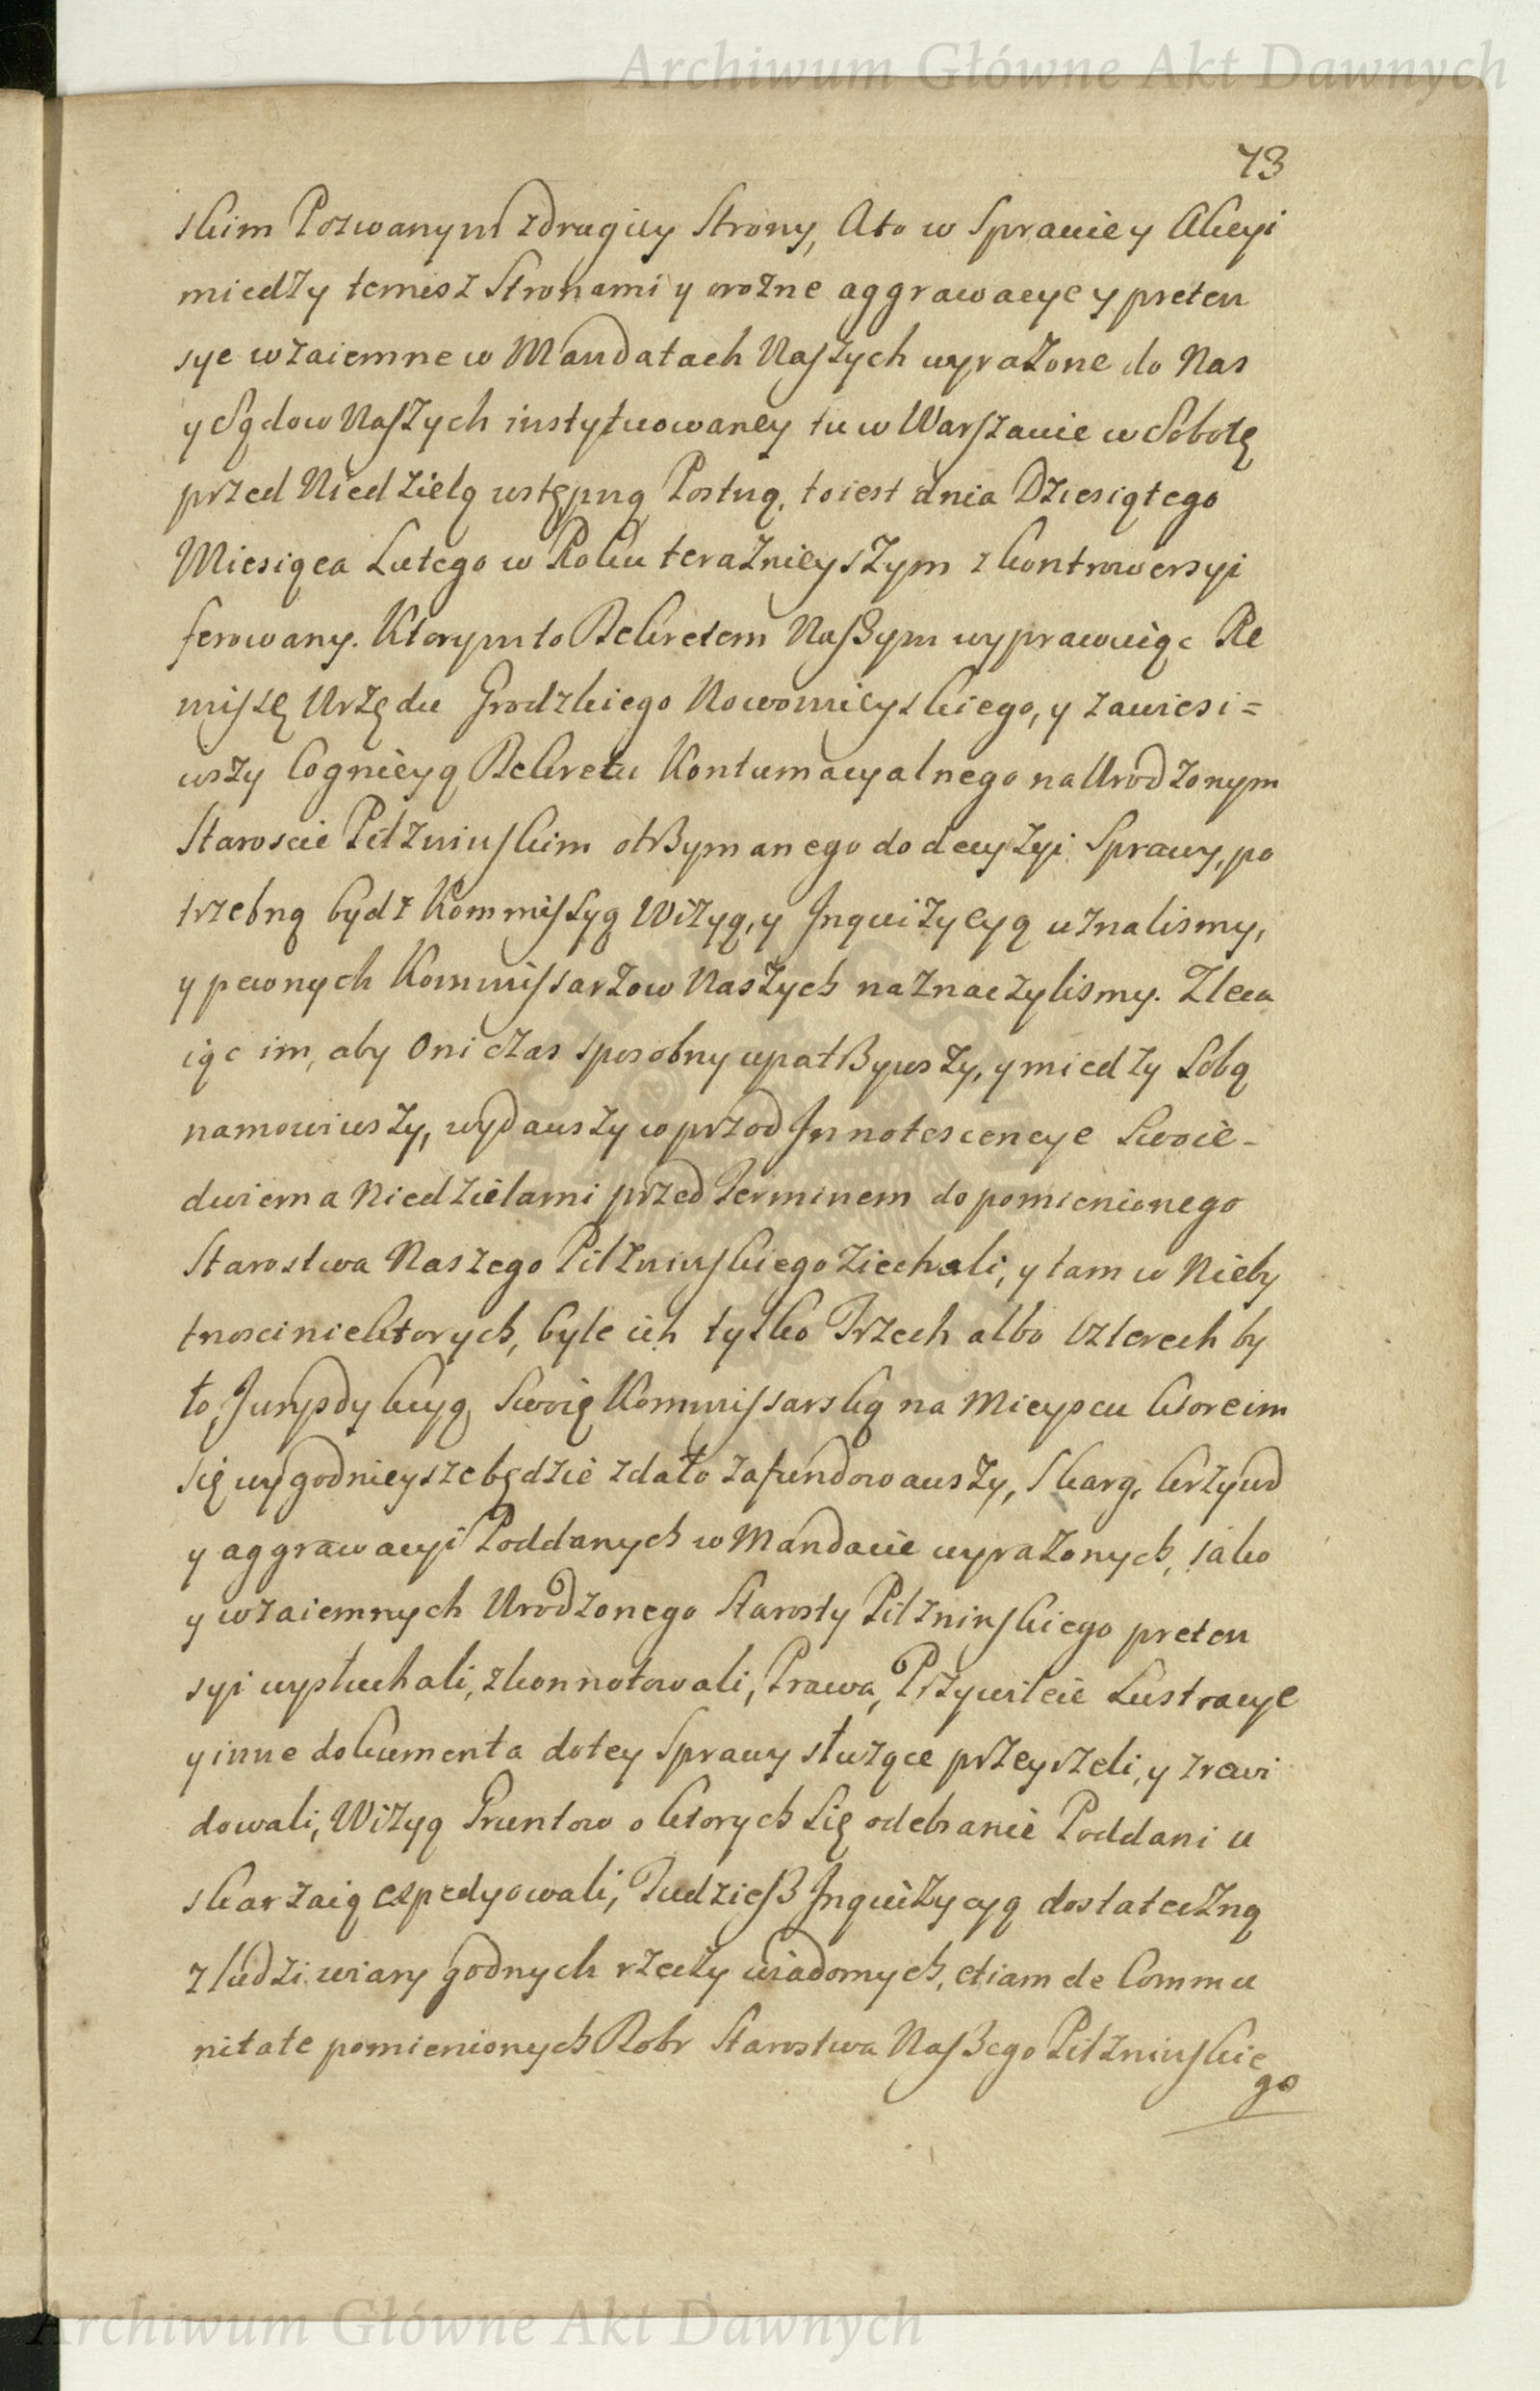 Archiwum Główne Akt Dawnych
73
skim Pozwanym z drugiey Strony, Ato w Sprawie y Akcyi
miedzy temisz Stronami y orożne aggrawacye y preten
sye wzaiemne w Mandatach Naszych wyrażone do Nas
y Sądow Naszych instytuowaney tu w Warszawie w Sobotę
przed Niedzielą wstępną Postną, toiest dnia Dziesiątego
Miesiąca Lutego w Roku teraźnieyszym z kontrowersyi
ferowany. Ktorym to Dekretem Naszym wyprawuiąc Re
missę Urzędu Grodzkiego Nowomieyskiego, y zawiesi=
wszy Cognicyą Dekretu Kontumacyalnego na Urodzonym
Staroscie Pilzninskim otrzymanego do decyzyi Sprawy, po
trzebną bydz Kommissyą Wizyą, y Inquizycyą uznalismy,
y pewnych Kommissarzow Naszych naznaczylismy. Zleca
iąc im, aby Oni czas sposobny upatrzywszy, y miedzy Sobą
namowiwszy, wydawszy wprzod Innotescencye Swoie-
dwiema Niedzielami przed Terminem do pomienionego
Starostwa Naszego Pilzninskiego ziechali, y tam w Nieby
tnosci niektorych, byle ich tylko Trzech albo Czterech by
ło, Jurysdykcyą Swoię Kommissarską na Mieyscu ktore im
się wygodnieysze będzie zdało zafundowawszy, Skarg, krzywd
y aggrawacyi Poddanych w Mandacie wyrażonych, jako
y wzaiemnych Urodzonego Starosty Pilzninskiego preten
syi wysłuchali, zkonnotowali, Prawa, Przywileie Lustracye
y inne dokumenta do tey Sprawy służące przeyrzeli, y zrewi
dowali, Wizyą Gruntow o ktorych Się odebranie Poddani u
skarzaią expedyowali, Tudziesz Inquizycyą dostateczną
z ludzi wiary godnych rzeczy wiadomych, etiam de Commu
nitate pomienionych Dobr Starostwa Naszego Pilzninskie
go
Archiwum Główne Akt Dawnych